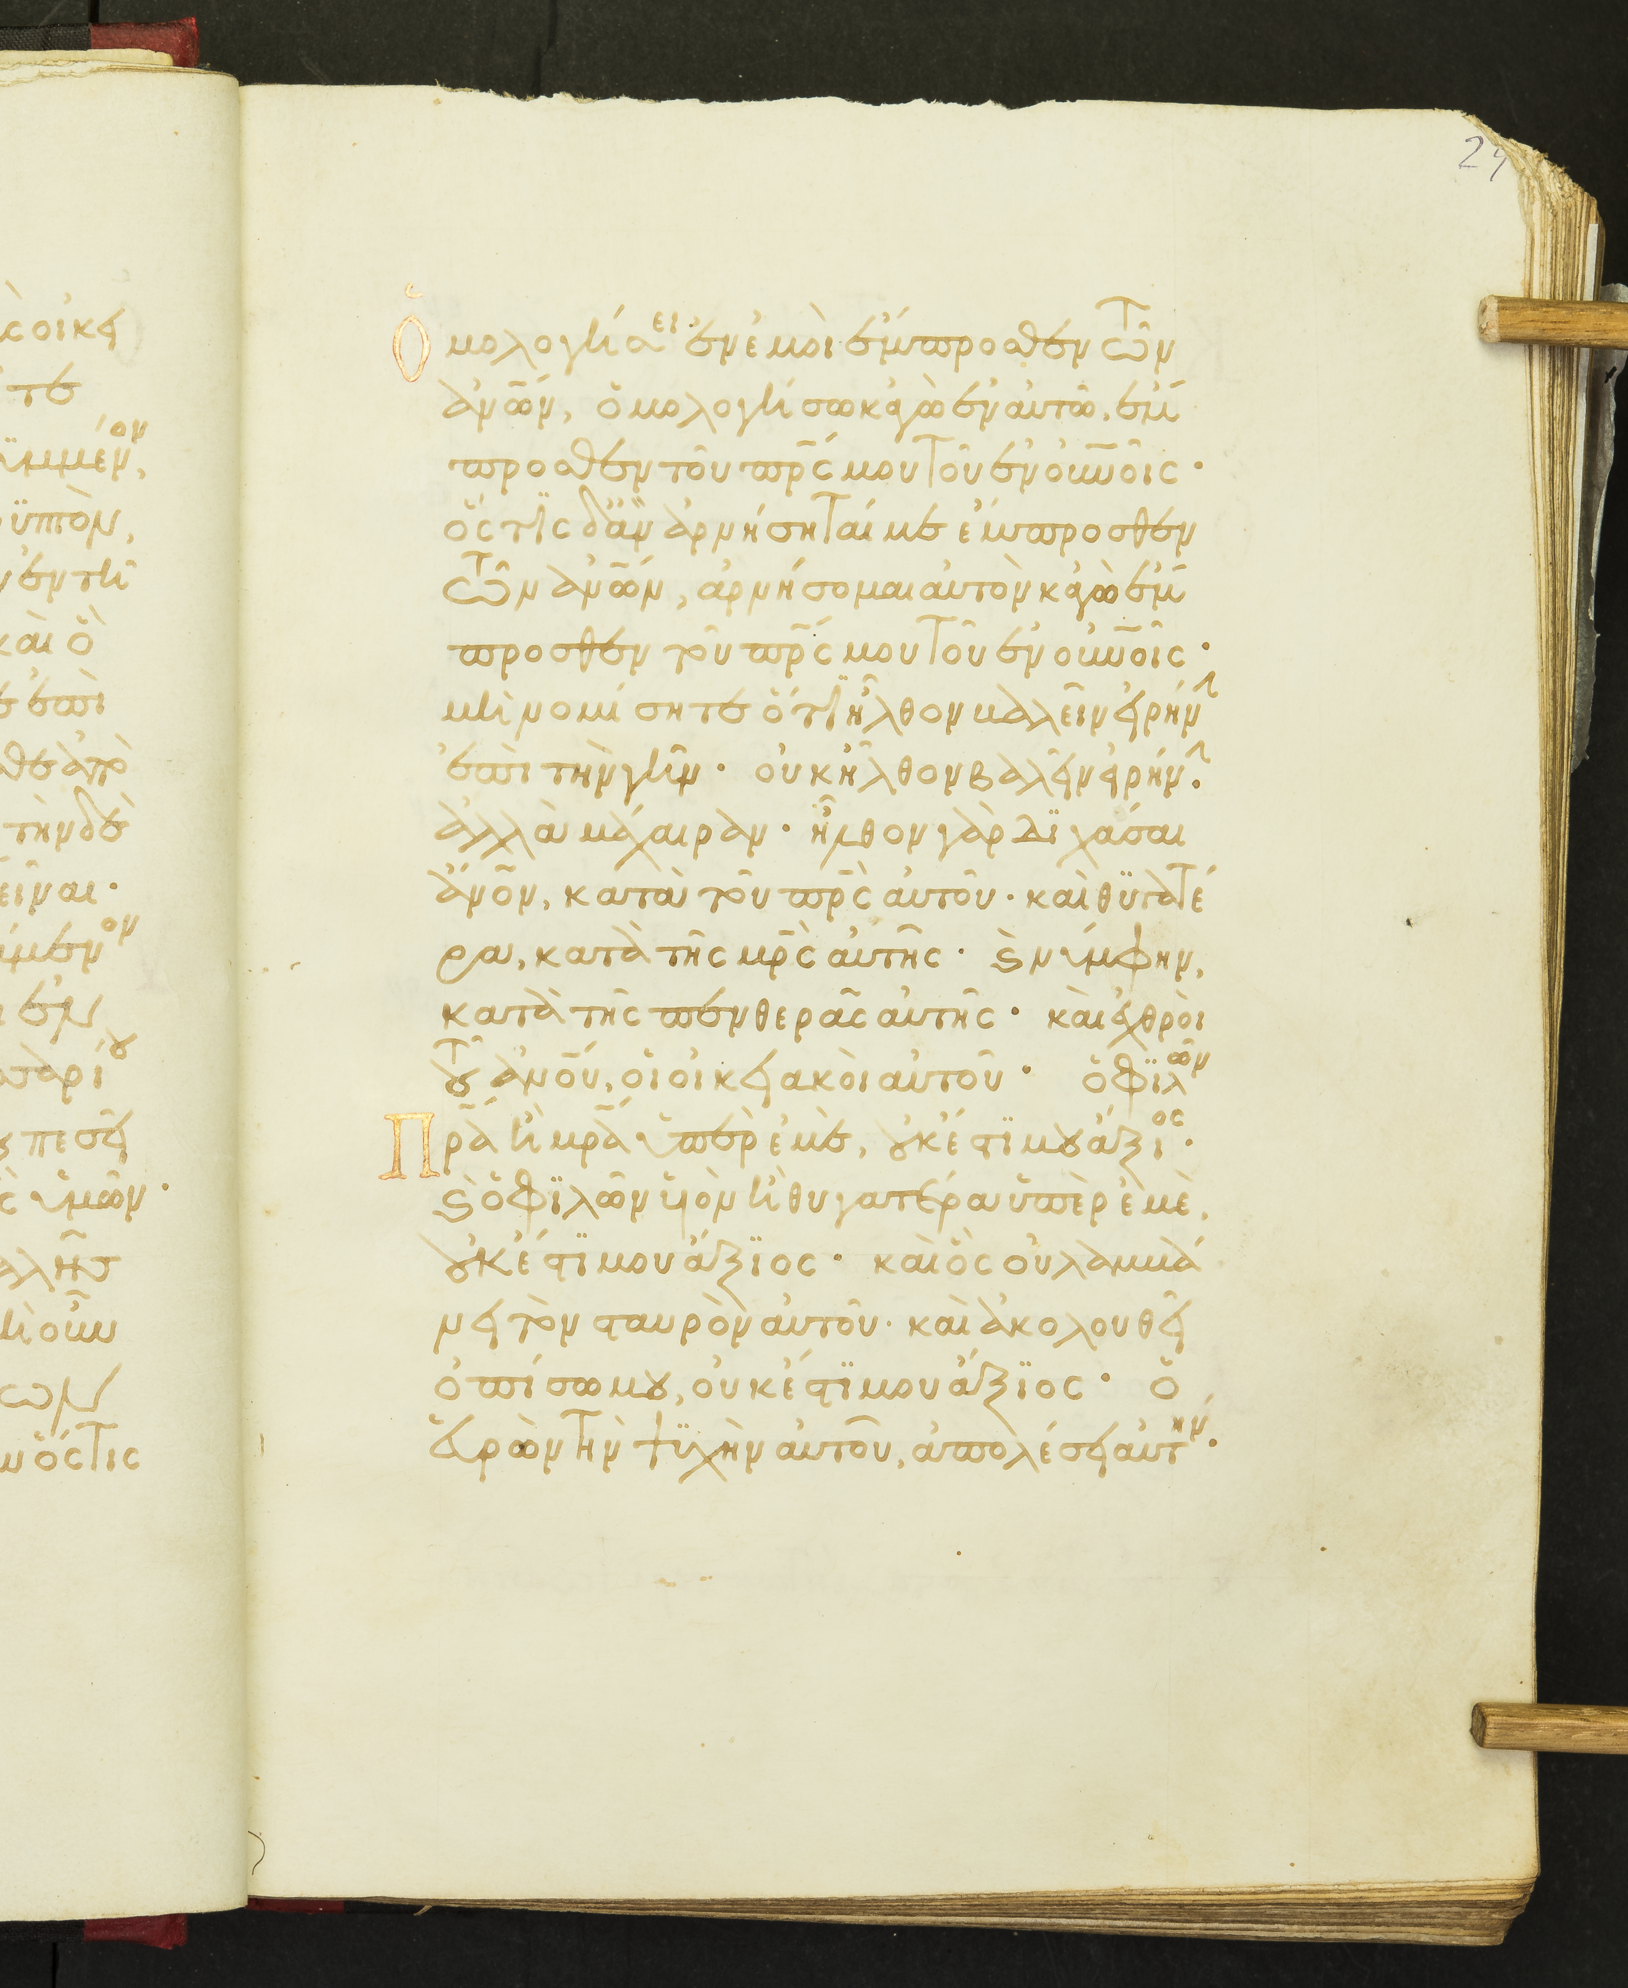 24
ὁμολογήσει ἐν ἐμοὶ ἔμπροσθεν τῶν
ἀν̅ω̅ν, ὁμολογήσω κἀγὼ ἐν αὐτῶ. ἔμ
προσθεν τοῦ πρ̅ς μου τοῦ ἐν οὐν̅οις ·
ὅς τις δ' ἂν ἀρνήσηταί με ἔμπροσθεν
τῶν ἀν̅ω̅ν, ἀρνήσομαι αὐτὸν κἀγὼ ἔμ
προσθεν τοῦ πρ̅ς μου τοῦ ἐν οὐν̅οις ·
μὴ νομίσητε ὅτι ἦλθον βαλεῖν εἰρήν
ἐπὶ τὴν γῆν · οὐκ ἦλθον βαλεῖν εἰρήν ·
ἀλλὰ μάχαιραν · ἦλθον γὰρ διχάσαι
ἄν̅ο̅ν, κατὰ τοῦ πρ̅ς αὐτοῦ · καὶ θυγατέ
ρα, κατὰ τῆς μρ̅ς αὐτῆς · ϗ νύμφην,
κατὰ τῆς πενθερᾶς αὐτῆς · καὶ ἐχθροὶ
τοῦ ἀν̅ο̅υ, οἱ οἰκειακοὶ αὐτοῦ · ὁ φιλῶν
πρ̅α ἢ μρ̅α ὑπὲρ ἐμὲ, οὐκ ἔστι μου ἄξιος ·
ϗ ὁ φιλῶν υἱὸν ἢ θυγατέρα ὑπὲρ ἐμὲ,
οὐκ ἔστι μου ἄξιος · καὶ ὃς οὐ λαμβά
νει τὸν σταυρὸν αὐτοῦ · καὶ ἀκολουθεῖ
ὀπίσω μου, οὐκ ἔστι μου ἄξιος · ὁ
εὑρὼν τὴν ψυχὴν αὐτοῦ, ἀπολέσει αὐτήν ·